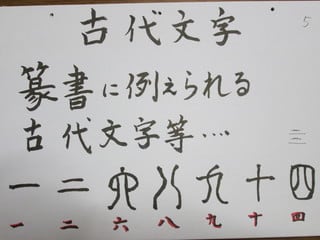 古代文字
5
篆書に例えられる
古代文字等…
三
一 二 六 八 九 十 四
一 二 六 八 九 十 四